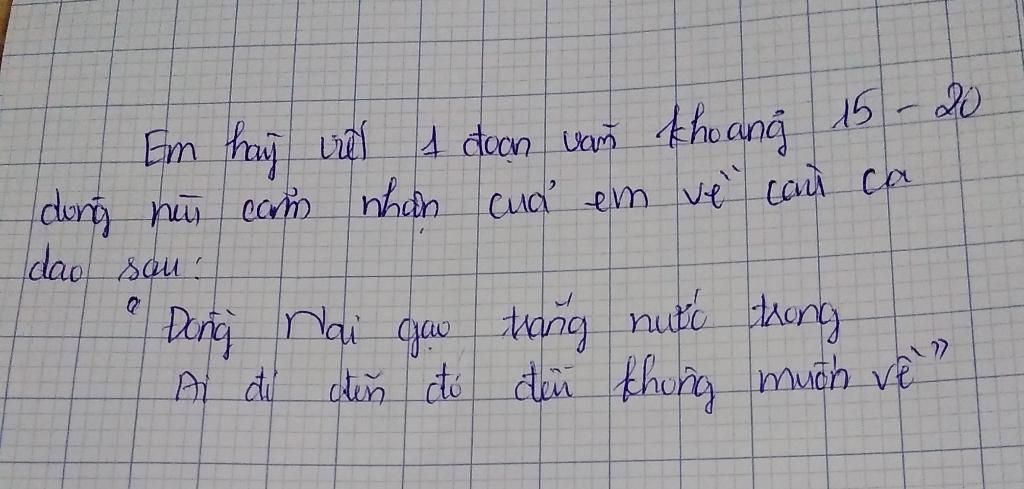 Em hãy viết 1 đoạn văn khoảng 15 - 20
dòng nêu cảm nhận của em về câu ca
dao sau:
"Đồng Nai gạo trắng nước trong
Ai đi đến đó đều không muốn về"